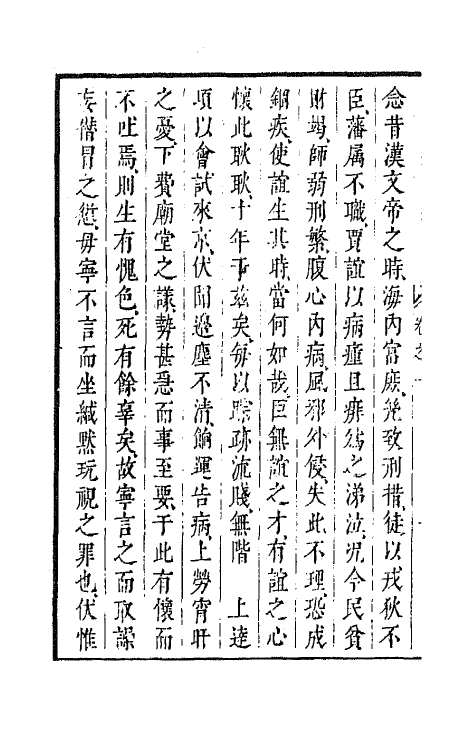 念昔漢文帝之時海内富庶幾致刑措徒以戎狄不
臣藩属不職賈誼以病瘇且痱為之涕泣况今民貧
財竭師弱刑繁腹心内病風邪外侵失此不理恐成
錮疾使誼生其時當何如哉臣無誼之才有誼之心
懷此耿耿十年于兹矣每以踪疏流賤無階　上達
項以會試來京伏聞邊塵不清餉運告病上勞宵旰
之憂下費廟堂之議勢甚急而事至要于此有懷而
不吐焉則生有愧色死有餘辜矣故寧言之而取譟
妄僭冒之愆毋寧不言而坐緘默玩視之罪也伏惟